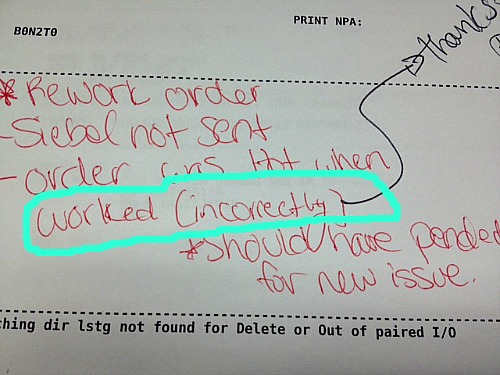 PRINT NPA:
B0N2T0
thanks
*Rework order
-Siebel not sent
-order was when
worked (incorrectly)
*should have pended
for new issue.
ching dir lstg not found for Delete or Out of paired I/O